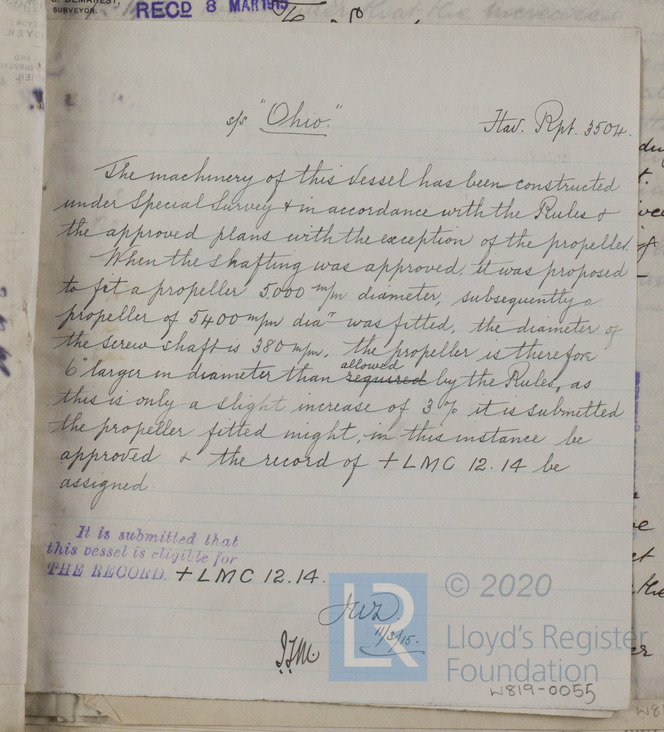 SURVEYOR.
RECD 8 MAR 1915
s/s "Ohio."
Hav. Rpt. 3504.
The machinery of this Vessel has been constructed
under Special Survey & in accordance with the Rules &
the approved plans with the exception of the propeller.
When the shafting was approved, it was proposed
to fit a propeller 5,000 m/m diameter, subsequently a
propeller of 5400 m/m diar was fitted, the diameter of
the screw shaft is 380 m/m, the propeller is therefore
allowed
6" larger in diameter than required by the Rules, as
this is only a slight increase of 3% it is submitted
the propeller fitted might, in this instance be
approved & the record of + LMC 12.14 be
assigned.
It is submitted that
this vessel is eligible for
THE RECORD. + LMC 12.14.
11/3/15.
J.F.M.
LR
© 2020
Lloyd's Register
Foundation
W819-0055